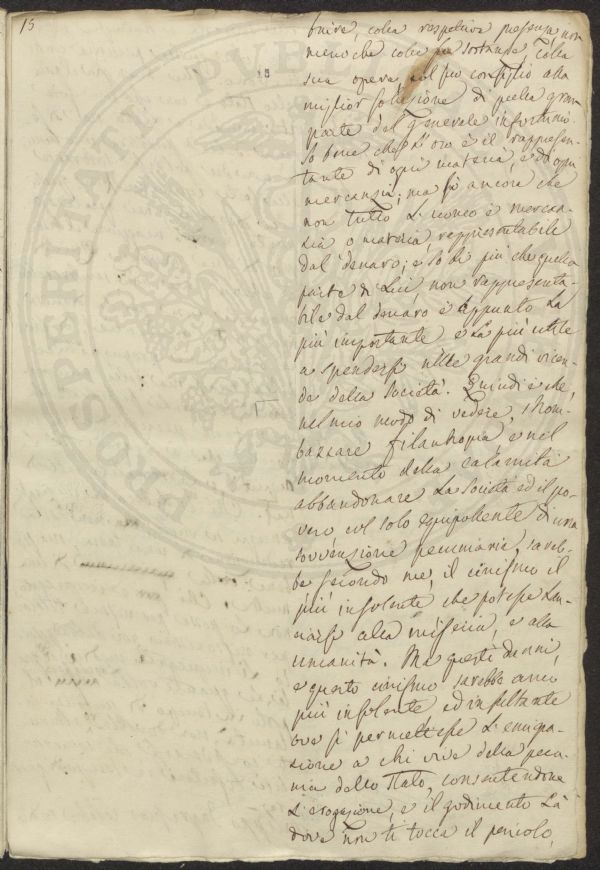 15
buire, colla respettiva presenza, non
meno che colle sostanze, colla
sua opera, col suo consiglio alla
miglior soluzione di quella gran
parte del generale infortunio.
So bene che l'oro è il rappresen-
tante di ogni materia, e di ogni
mercanzia; ma so ancora che
non tutto l'uomo è mercan-
zia o materia, rappresentabile
dal denaro; e so di più che quella
parte di lui, non rappresenta-
bile dal denaro è appunto la
più importante e la più utile
a spendersi nelle grandi vicen-
de della società. Quindi è che,
nel mio modo di vedere, strom-
bazzare filantropia, e nel
momento della calamità
abbandonare la società ed il po-
vero, col solo equipollente di una
sovvenzione pecuniaria, sareb-
be secondo me, il cinismo il
più insolente che potesse lan-
ciarsi alla miseria, e alla
umanità. Ma questi danni,
e questo cinismo sarebbe anco
più insolente ed insultante
ove si permettesse l'emigra-
zione a chi vive della pecu-
nia dello Stato, consentendone
l'erogazione, e il godimento là
dove non ti tocca il pericolo,
PROSPERITATI PVBLIC